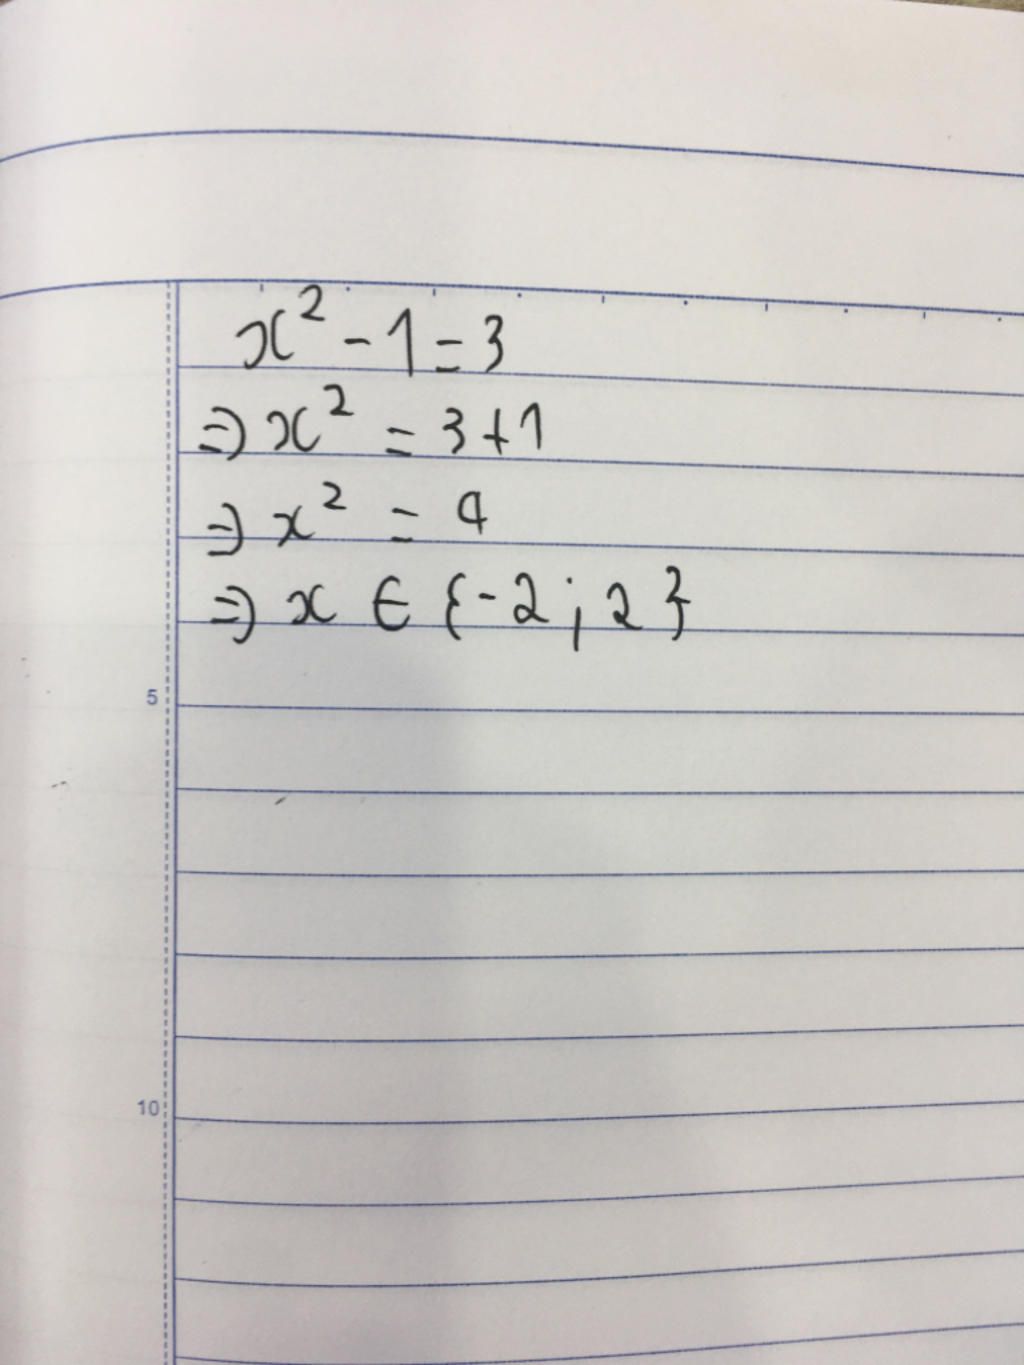 x² - 1 = 3
⇒ x² = 3 + 1
⇒ x² = 4
⇒ x ∈ {-2; 2}
5
10